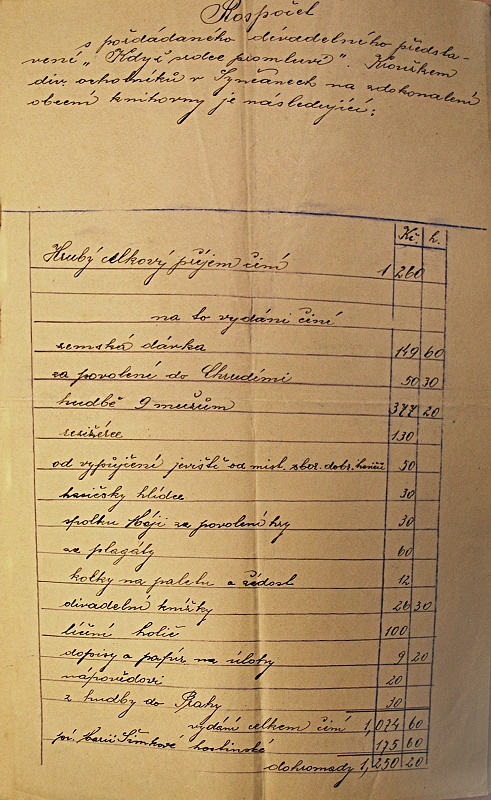 Rospočet
s pořádaného divadelního předsta-
vení „Když srdce promluví". Kroužkem
div. ochotníků v Synčanech na zdokonalení
obecní knihovny je následující:
Kč. h.
Hrubý celkový příjem činí 1 260
na to vydání činí
zemská dávka 149 60
za povolení do Chrudimi 50 30
hudbě 9 mužům 377 20
režisérce 130
od vypůjčení jeviště od míst. sbor. dobr. hasičů 50
hasičsky hlídce 30
spolku Máj za povolení hry 30
za plagáty 60
kolky na paletu a žádost 12
divadelní knížky 26 30
líčení holič 100
dopisy a papír na úlohy 9 20
nápovědovi 20
z hudby do Prahy 30
vydání celkem činí 1,074 60
pí. Marii Šimkové hostinské 175 60
dohromady 1,250 20